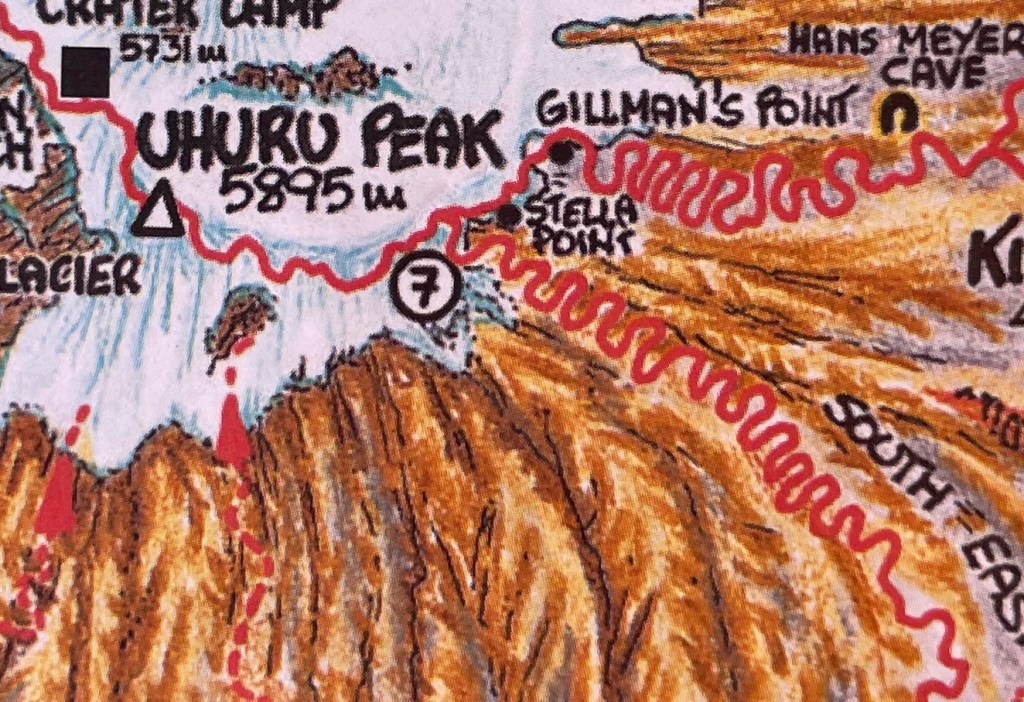 CRATER CAMP
5731 m
HANS MEYER
CAVE
GILLMAN'S POINT
UHURU PEAK
5895 m
STELLA
POINT
LACIER
7
KI
SOUTH - EAS